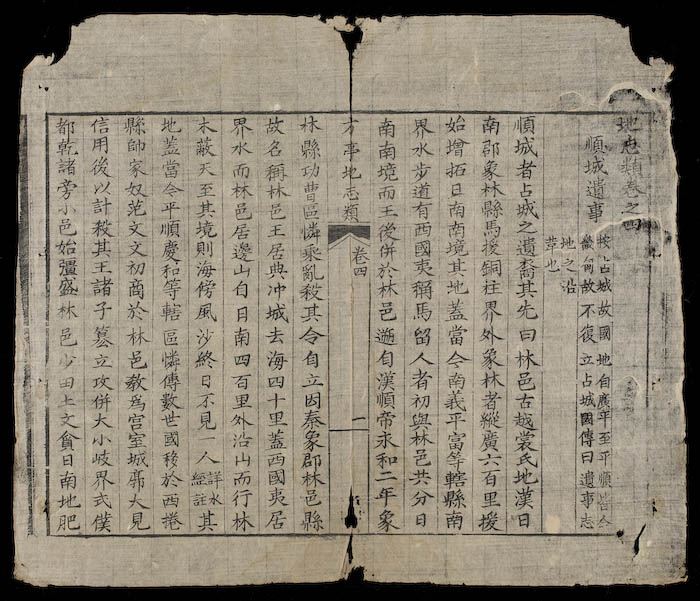 地志類卷之四
順城遺事
按占城故國地自廣平至平順皆今
畿甸故不復立占城國傳曰遺事志
地之沿
革也
順城者占城之遺裔其先曰林邑古越裳氏地漢日
南郡象林縣馬援銅柱界外象林者縱廣六百里援
始增拓日南南境其地蓋當今南義平富等轄縣南
界水步道有西國夷稱馬留人者初與林邑共分日
南南境而王後併於林邑遡自漢順帝永和二年象
方事地志類 卷四 一
林縣功曹區憐乘亂殺其令自立因秦象郡林邑縣
故名稱林邑王居典冲城去海四十里蓋西國夷居
界水而林邑居邊山自日南四百里外沿山而行林
木蔽天至其境則海傍風沙終日不見一人詳水經註其
地蓋當今平順慶和等轄區憐傳數世國移於西捲
縣帥家奴范文文初商於林邑教爲宮室城廓大見
信用後以計殺其王諸子篡立攻併大小岐界式僕
都乾諸旁小邑始彊盛林邑少田土文貪日南地肥